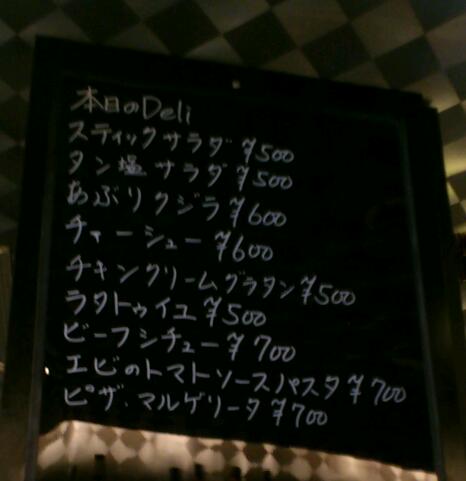 本日のDeli
スティックサラダ ¥500
タン塩サラダ ¥500
あぶりクジラ ¥600
チャーシュー ¥600
チキンクリームグラタン ¥500
ラタトゥイユ ¥500
ビーフシチュー ¥700
エビのトマトソースパスタ ¥700
ピザ・マルゲリータ ¥700